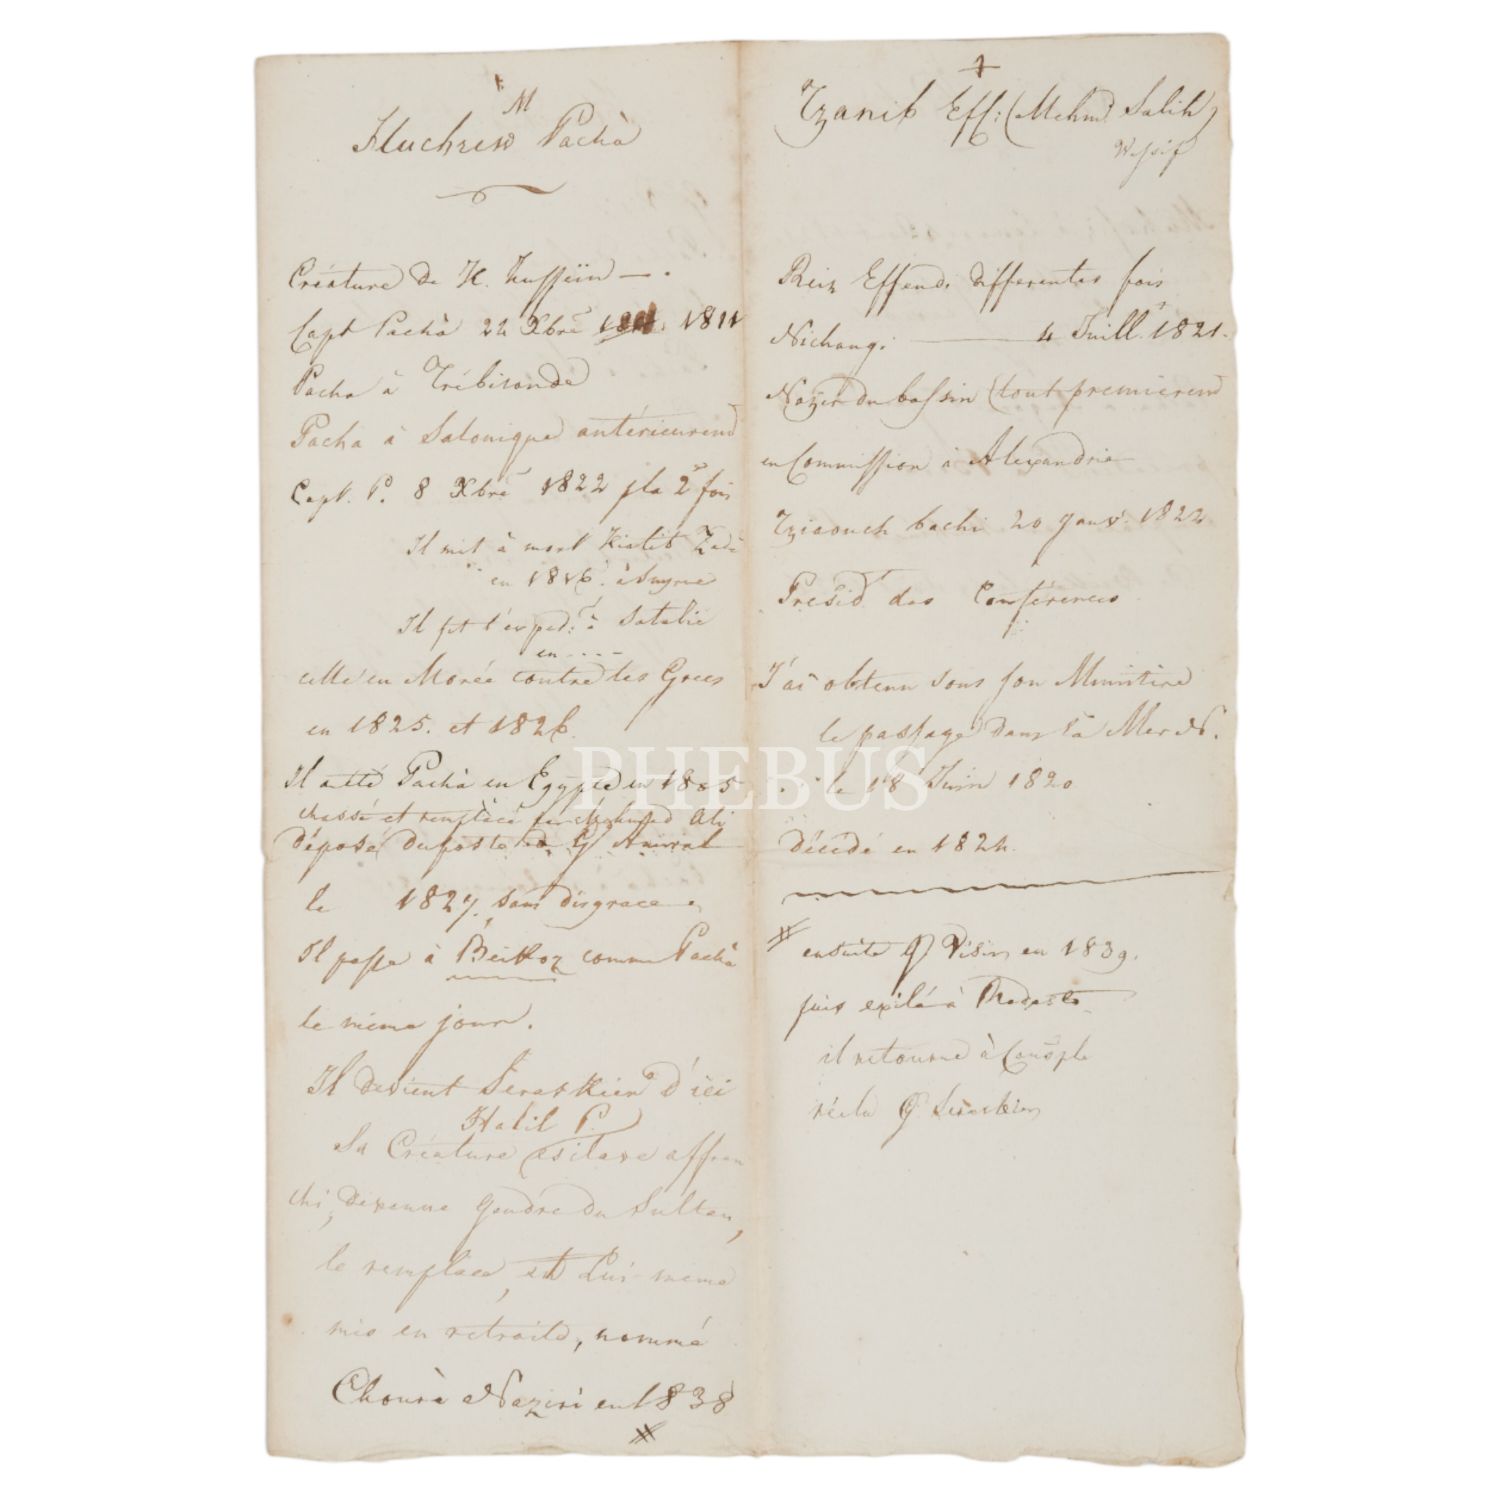 M
Huchrew Pachà
Créature de H. Hussein —.
Capt Pachà 22 Xbre 1811
Pacha à Trébisonde
Pacha à Salonique antérieuremt
Capt. P. 8 Xbre 1822 pla 2e fois
Il mit à mort Kiatib Zadé
en 1816. à Smyrne
Il fit l'exped: à Satalie
en ....
celle en Morée contre les Grecs
en 1825. et 1826.
Il a été Pachà en Egypte en 1805
chassé et remplacé par Mehmed Ali
déposé du poste de Gd Amiral
le 1827, sans disgrace.
Il passe à Beikoz comme Pachà
le même jour.
Il devient Seraskier d'ici
Halil P.
Sa Créature esclave affran
chi, devenue gendre du Sultan,
le remplace, et Lui-meme
mis en retraite, nommé
Chourà Naziri en 1838
#
Tzanib Eff: (Mehmd Salih)
Wessif
Reiz Effendi differentes fois
Nichangi — 4 Juill. 1821.
Nazir du bassin (tout premieremt
en Commission à Alexandrie
Tziaouch bachi 20 Janv. 1822
Présidt des Conférences
J'ai obtenu sous son Ministère
le passage dans la Mer N.
le 18 Juin 1820
Décédé en 1824.
# ensuite Gd Visir en 1839.
puis exilé à Rhodosto
il retourne à Consple
PHEBUS